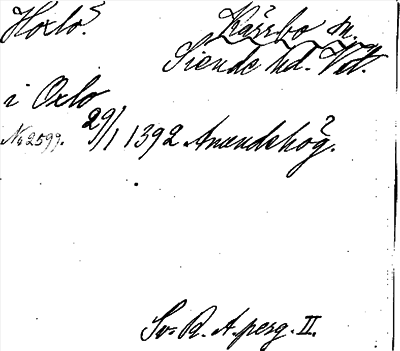 Hoxlö.
Kärrbo sn.
Siende hd. Vstl.
i Oxlo
No 2599. 29/1 1392 Anundshög.
Sv. R. A. perg. II.